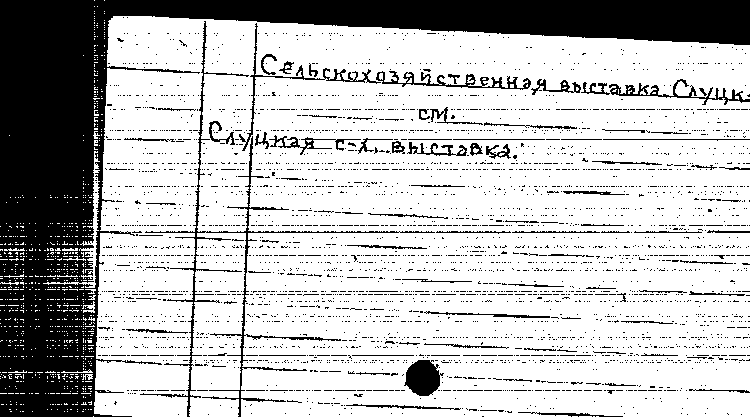 Сельскохозяйственная выставка. Слуцк-
см.
Слуцкая с-х. выставка.